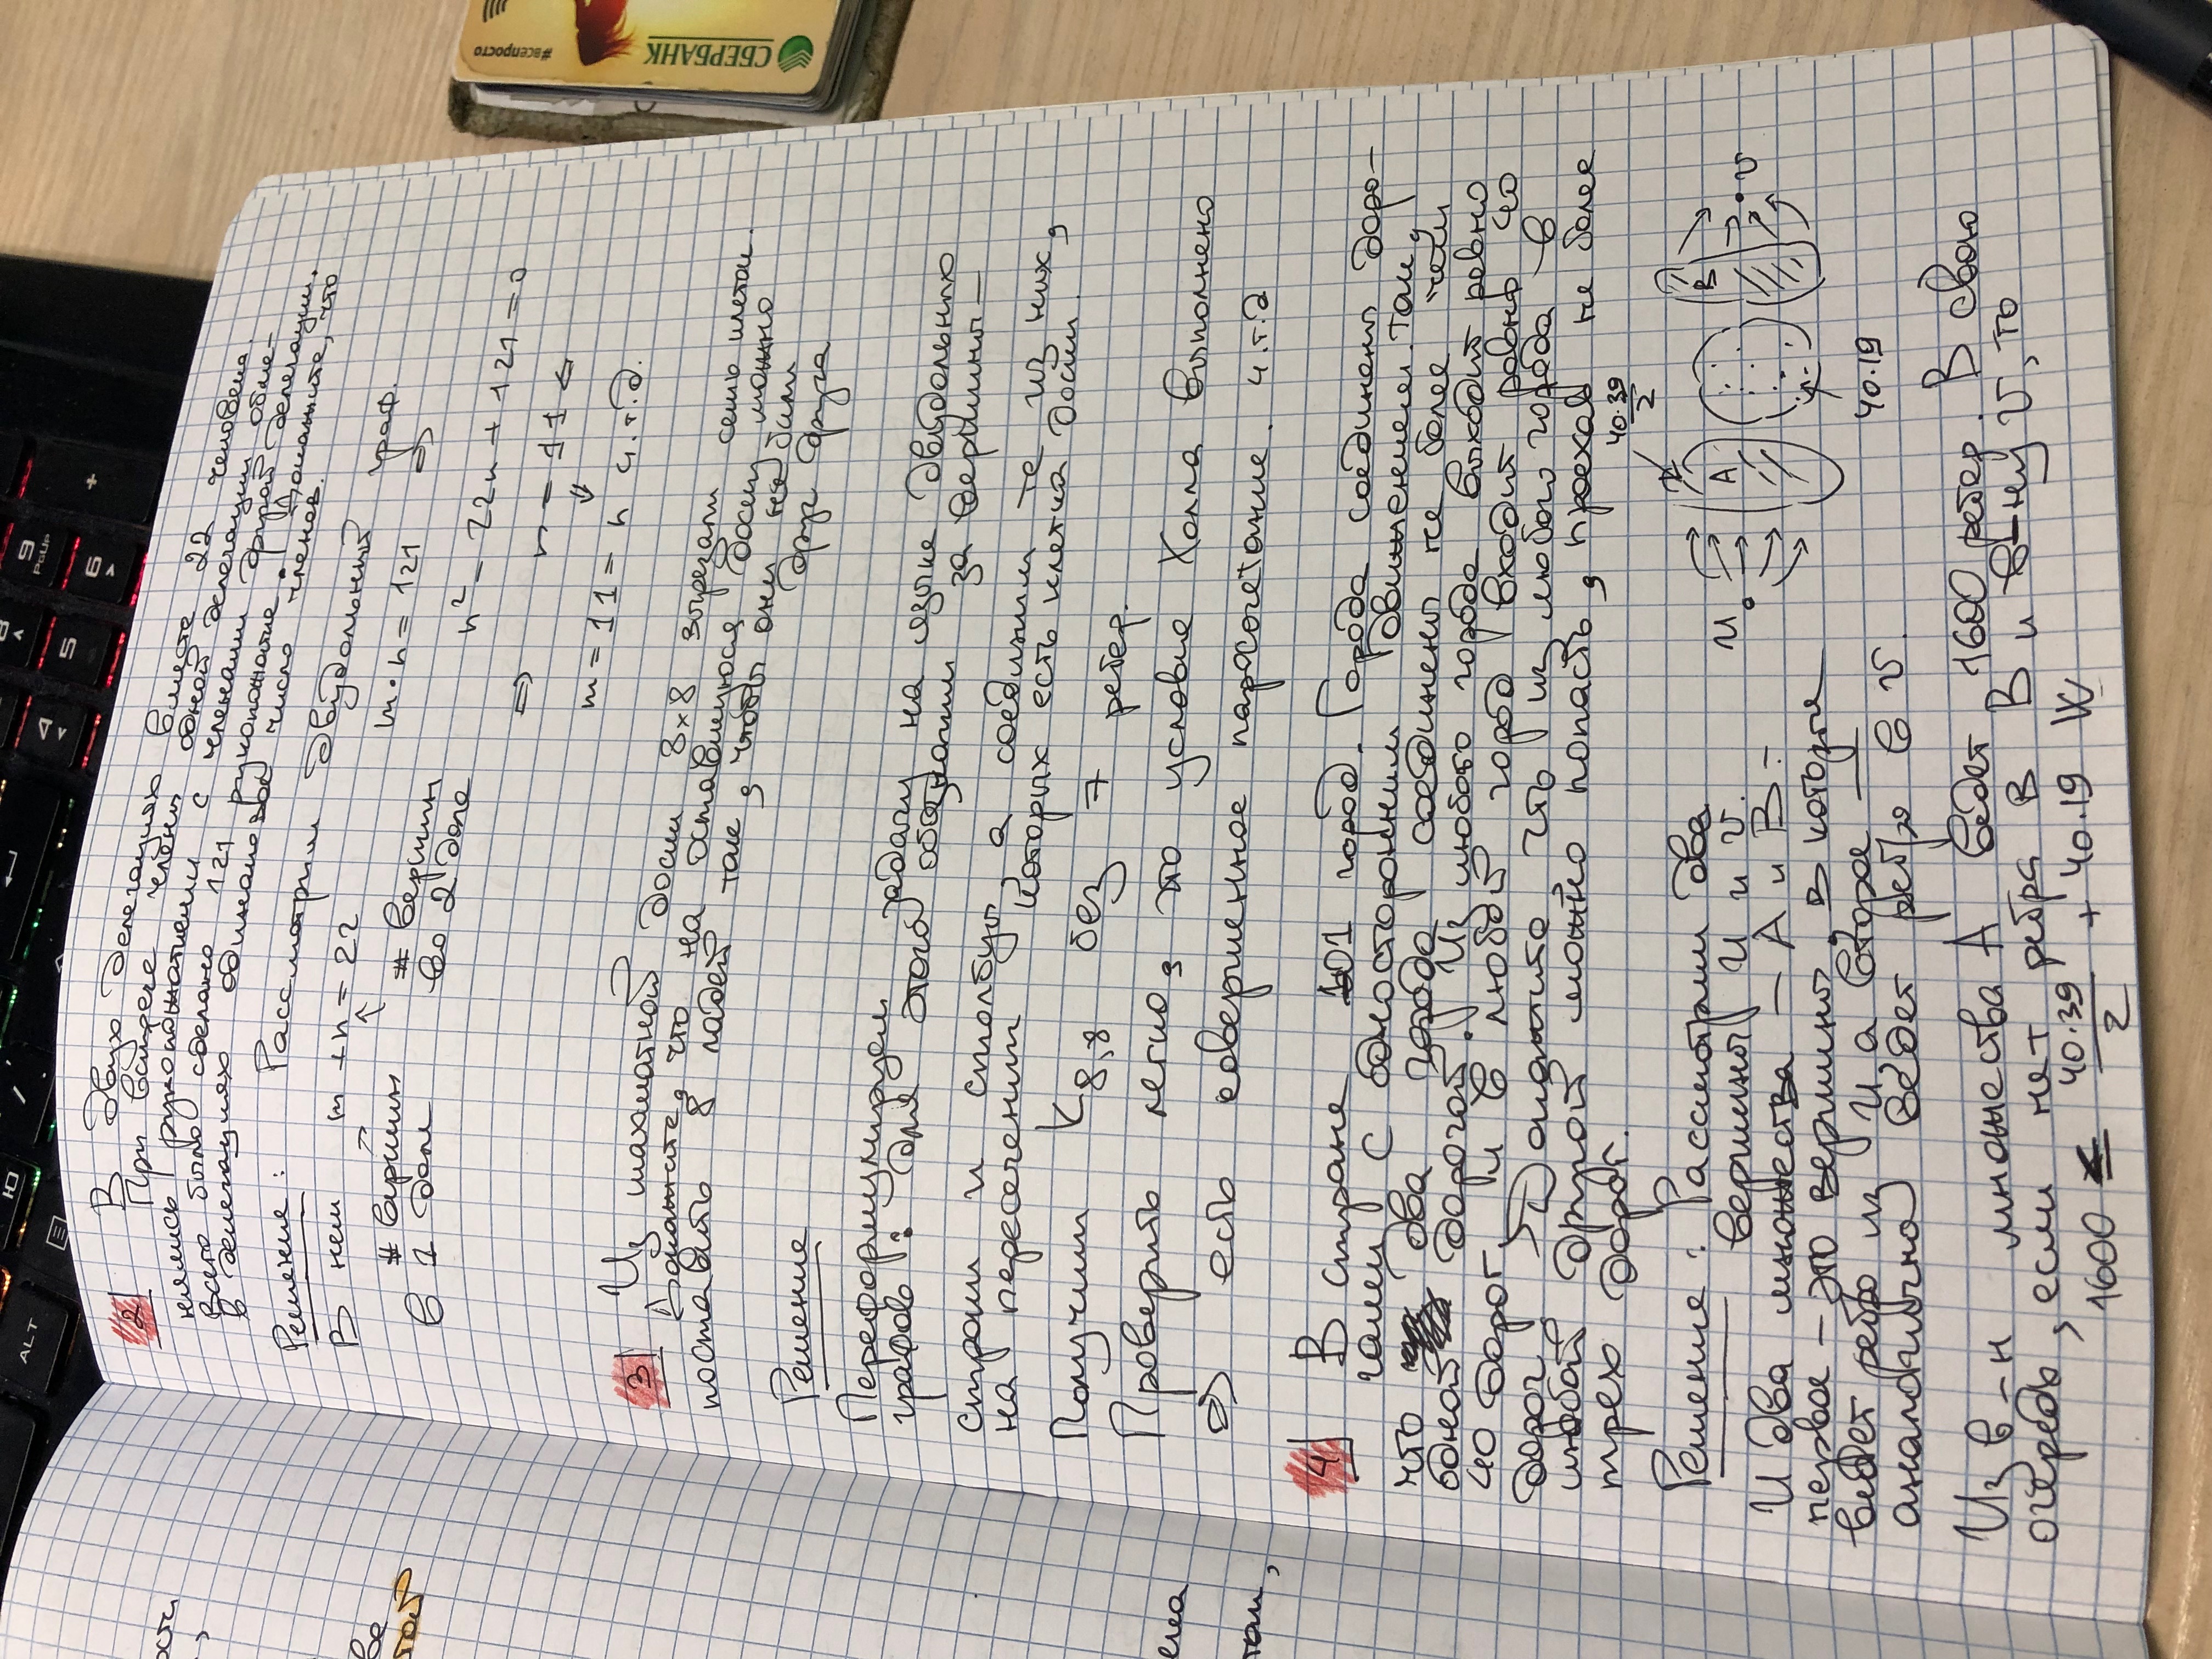 ALT
Ю
8
9
PgUp
4
5
6
+
ости
ве
той
ена
том,
2 В двух делегациях вместе 22 человека.
При встрече члены одной делегации обме-
нялись рукопожатиями с членами другой делегации.
Всего было сделано 121 рукопожатие. Докажите, что
в делегациях одинаковое число членов.
Решение: Рассмотрим двудольный граф.
В нем m + n = 22 m · n = 121 ⇒
# вершин # вершин
в 1 доле во 2 доле
n² - 22n + 121 = 0
⇒ n = 11 ←
m = 11 = n ч.т.д.
3 Из шахматной доски 8×8 вырезали семь клеток.
Докажите, что на оставшуюся доску можно
поставить 8 ладей так, чтобы они не били
друг друга
Решение
Переформулируем задачу на языке двудольных
графов: для этого обозначим за вершины —
строки и столбцы, а соединим те из них,
на пересечении которых есть клетка доски.
Получим K8,8 без 7 ребер.
Проверить легко, что условие Холла выполнено
⇒ есть совершенное паросочетание. ч.т.д
4 В стране 101 город. Города соединены доро-
гами с односторонним движением так,
что два города соединены не более чем
одной дорогой. Из любого города выходит ровно
40 дорог, и в любой город входит ровно 40
дорог. Докажите, что из любого города в
любой другой можно попасть, проехав не более
трех дорог.
Решение: Рассмотрим две
вершины u и v.
И два множества — A и B:
первое — это вершины, в которые
ведет ребро из u, а второе —
аналогично ведет ребро в v.
40·39
2
u A B v
40·19
Из в-н множества A ведет 1600 ребер. В свою
очередь, если нет ребра в B и в-ну v, то
1600 ≤ 40·39/2 + 40·19 W
#всепросто
СБЕРБАНК